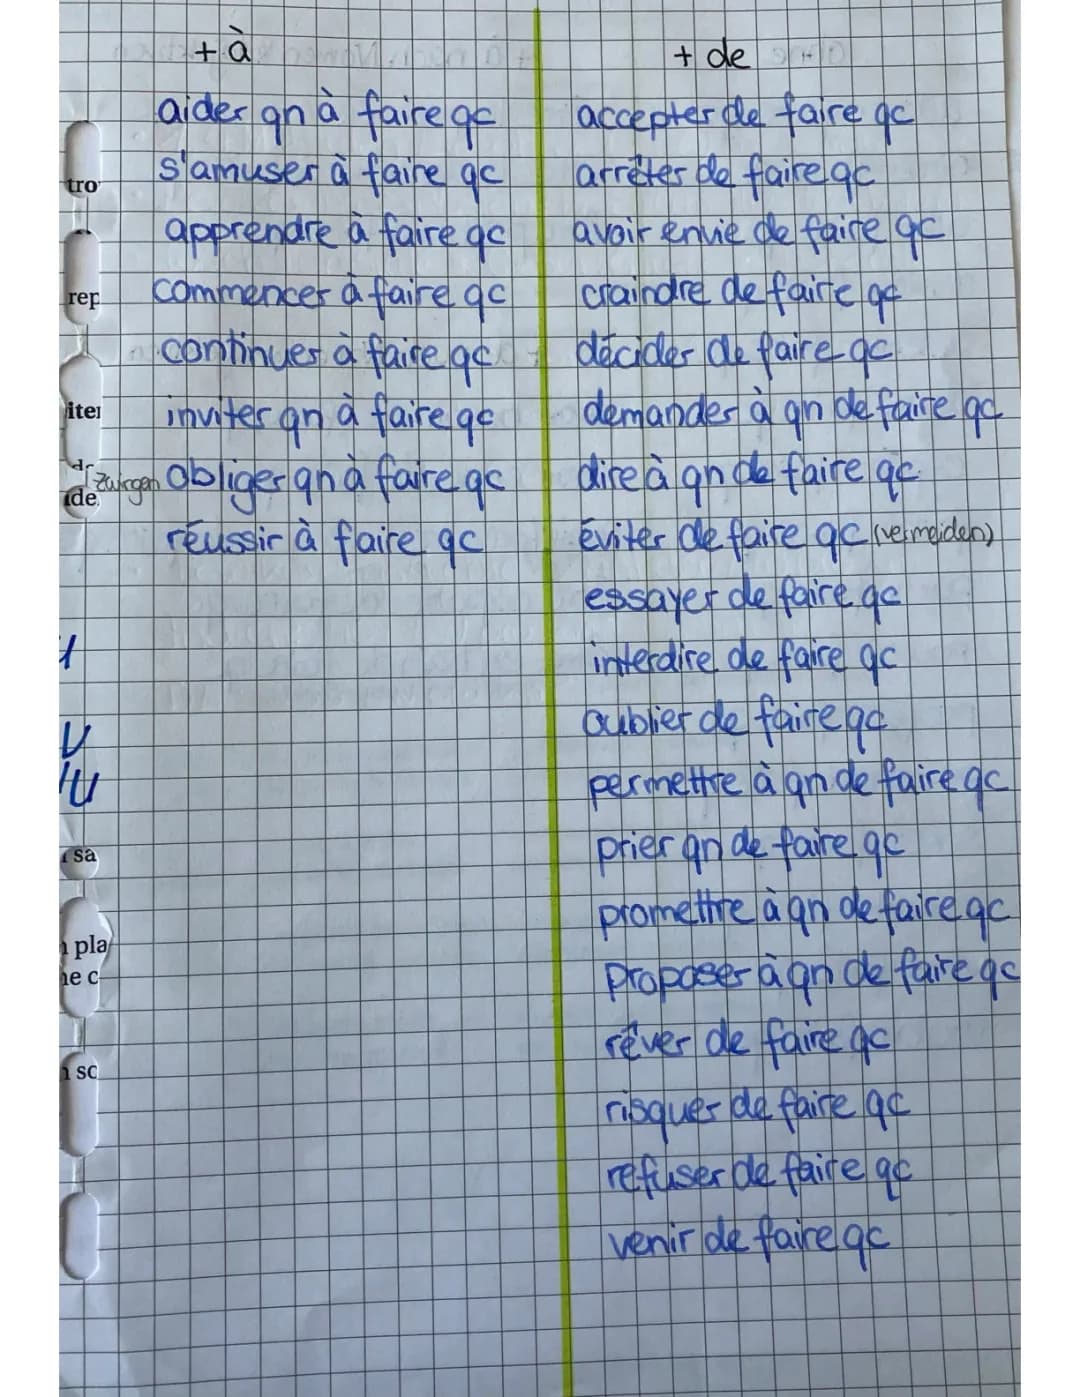 + à
aider qn à faire qc
s'amuser à faire qc
apprendre à faire qc
commencer à faire qc
continuer à faire qc
inviter qn à faire qc
zwingen obliger qn à faire qc
réussir à faire qc
+ de
accepter de faire qc
arrêter de faire qc
avoir envie de faire qc
craindre de faire qc
décider de faire qc
demander à qn de faire qc
dire à qn de faire qc
éviter de faire qc (vermeiden)
essayer de faire qc
interdire de faire qc
oublier de faire qc
permettre à qn de faire qc
prier qn de faire qc
promettre à qn de faire qc
proposer à qn de faire qc
rêver de faire qc
risquer de faire qc
refuser de faire qc
venir de faire qc
tro
rep
iter
de
sa
pla
ne c
sc